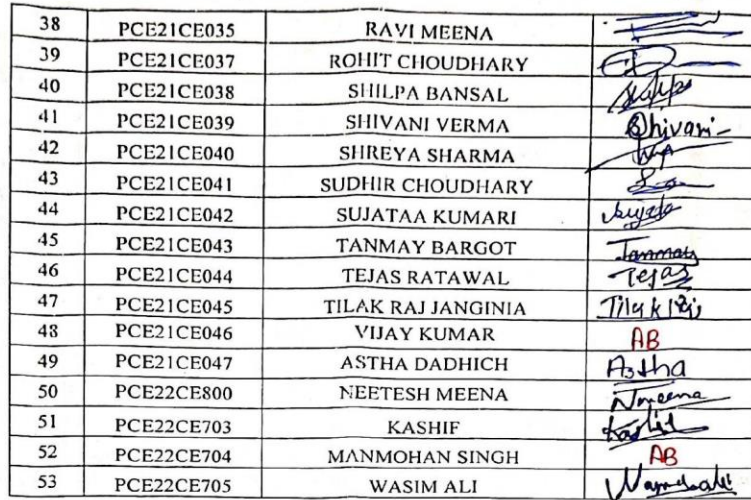 38 PCE21CE035 RAVI MEENA
39 PCE21CE037 ROHIT CHOUDHARY
40 PCE21CE038 SHILPA BANSAL Shilpa
41 PCE21CE039 SHIVANI VERMA Shivani
42 PCE21CE040 SHREYA SHARMA
43 PCE21CE041 SUDHIR CHOUDHARY
44 PCE21CE042 SUJATAA KUMARI Sujata
45 PCE21CE043 TANMAY BARGOT Tanmay
46 PCE21CE044 TEJAS RATAWAL Tejas
47 PCE21CE045 TILAK RAJ JANGINIA Tilak Raj
48 PCE21CE046 VIJAY KUMAR AB
49 PCE21CE047 ASTHA DADHICH Astha
50 PCE22CE800 NEETESH MEENA Nmeena
51 PCE22CE703 KASHIF Kashif
52 PCE22CE704 MANMOHAN SINGH AB
53 PCE22CE705 WASIM ALI